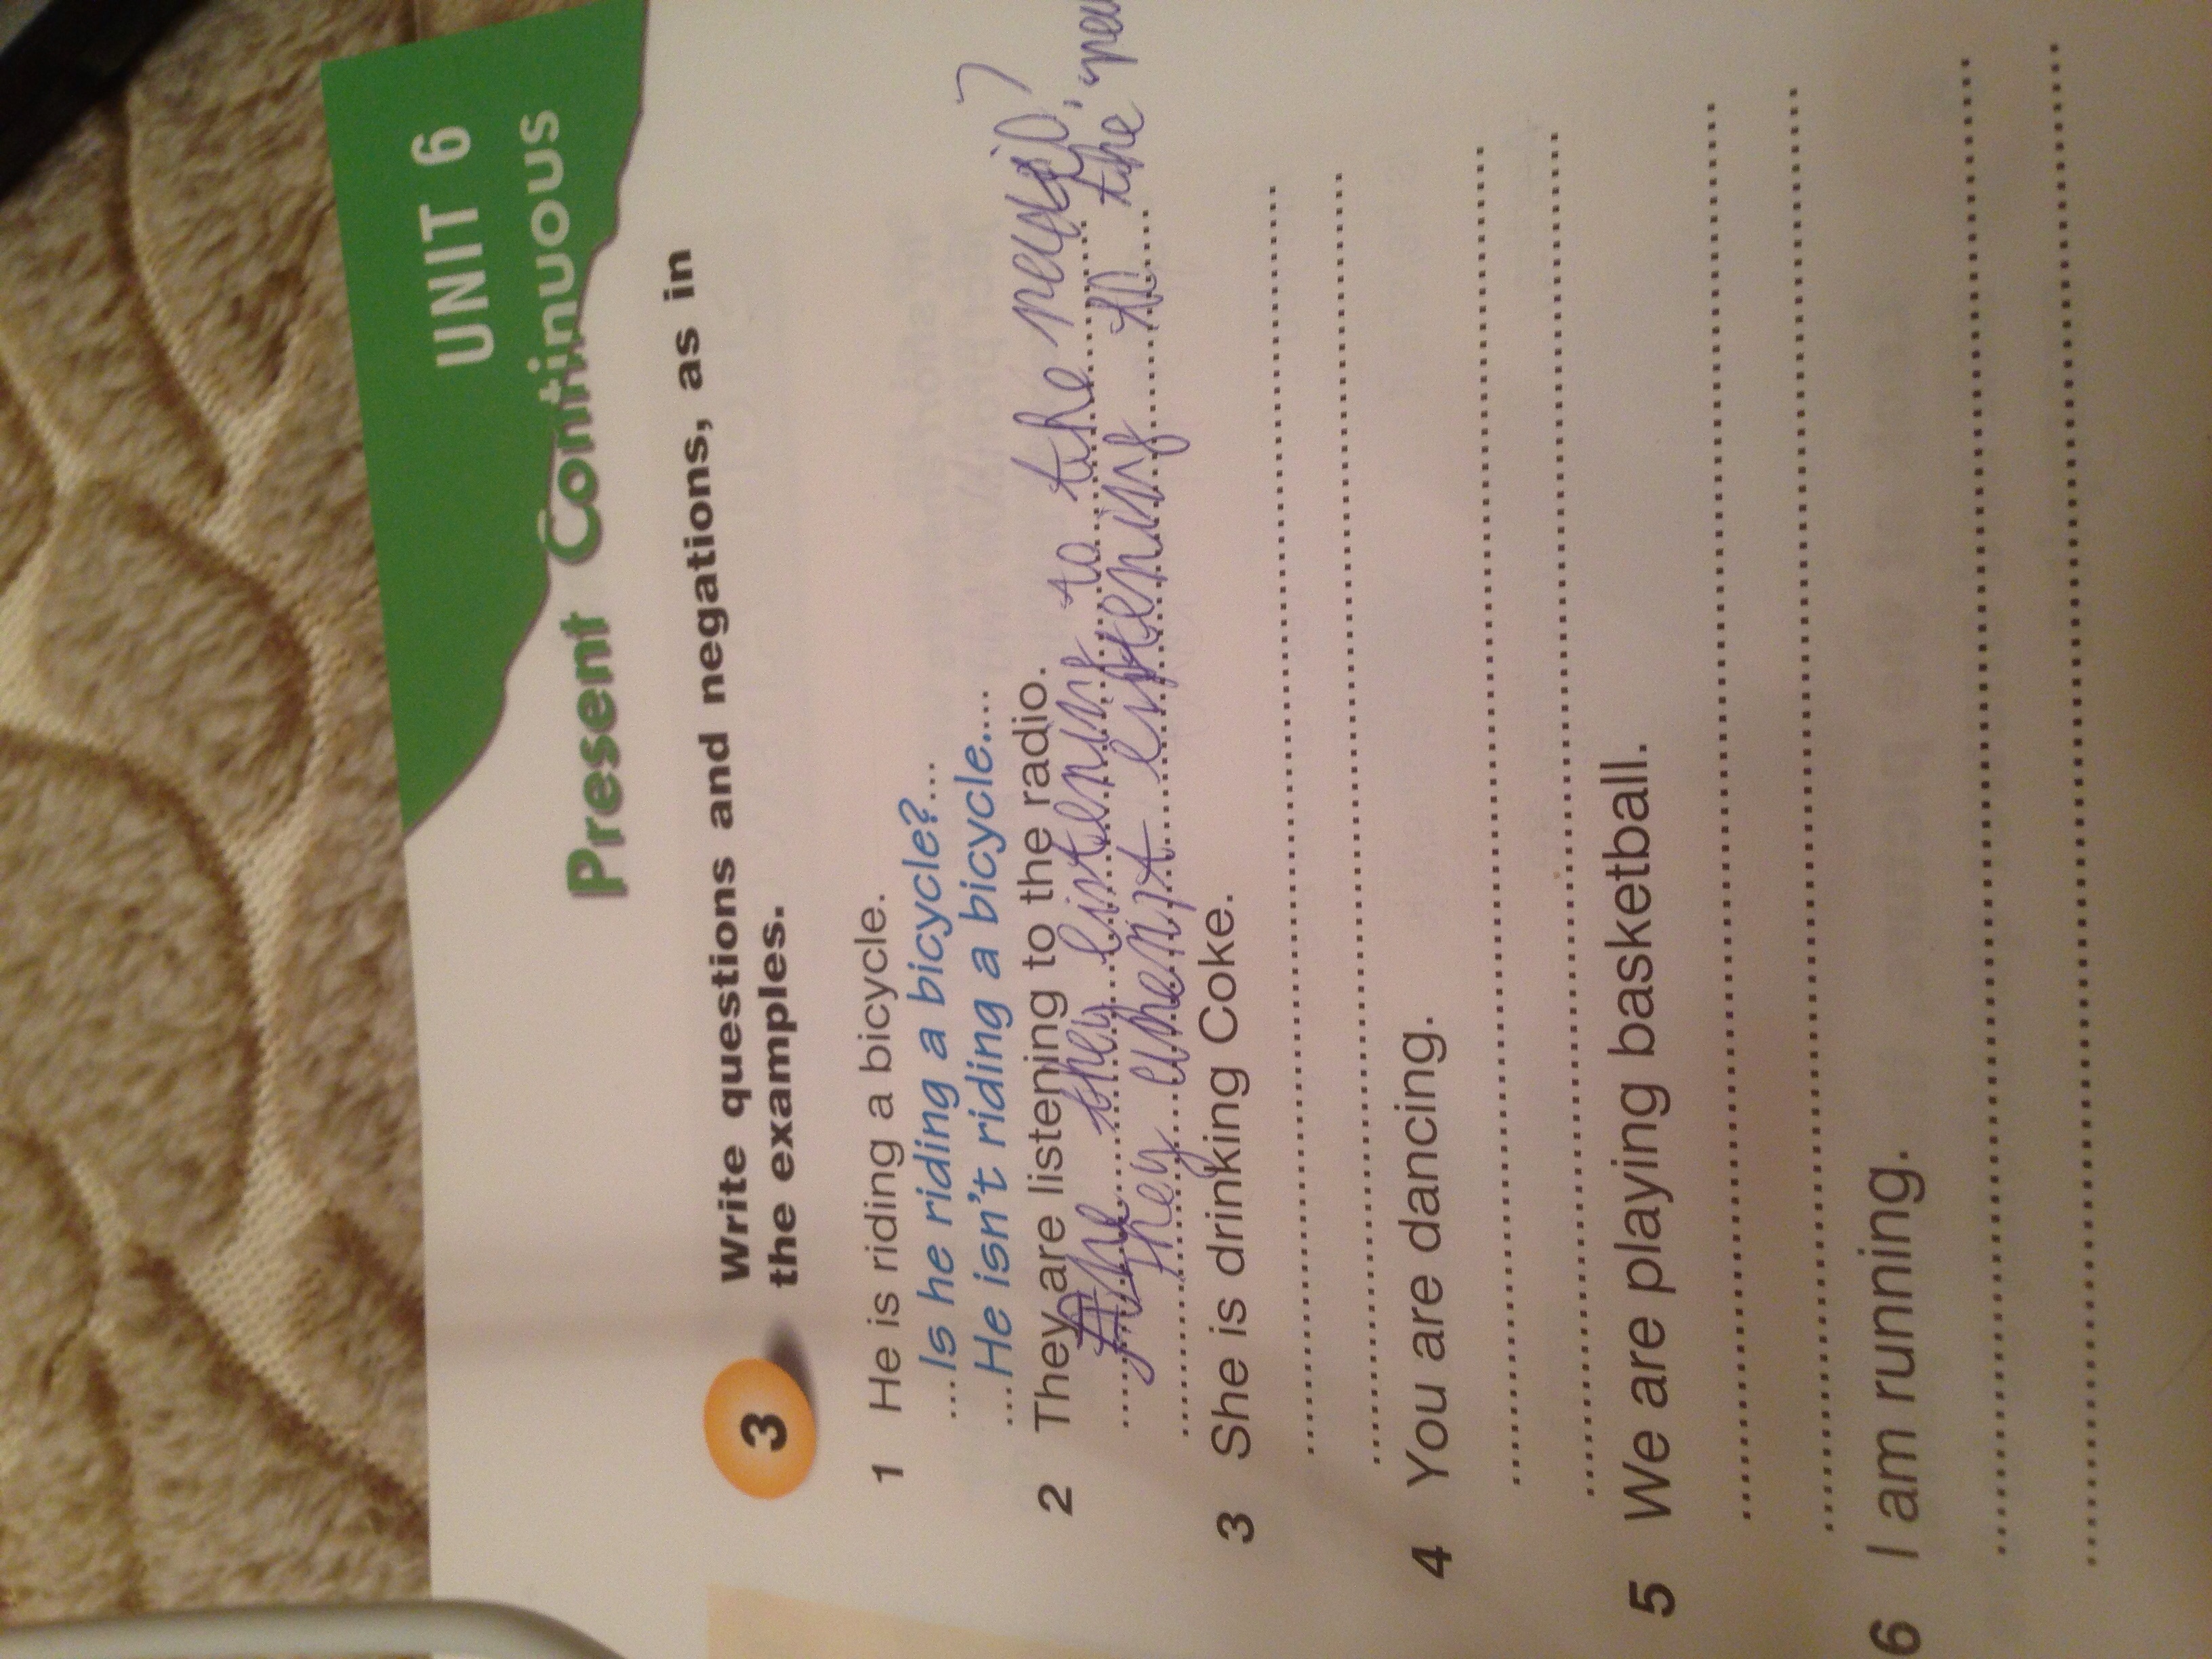 UNIT 6
Present Continuous
3 Write questions and negations, as in
the examples.
1 He is riding a bicycle.
....Is he riding a bicycle?...
....He isn't riding a bicycle....
2 They are listening to the radio.
Are they listening to the
They listening to the
3 She is drinking Coke.
4 You are dancing.
5 We are playing basketball.
6 I am running.